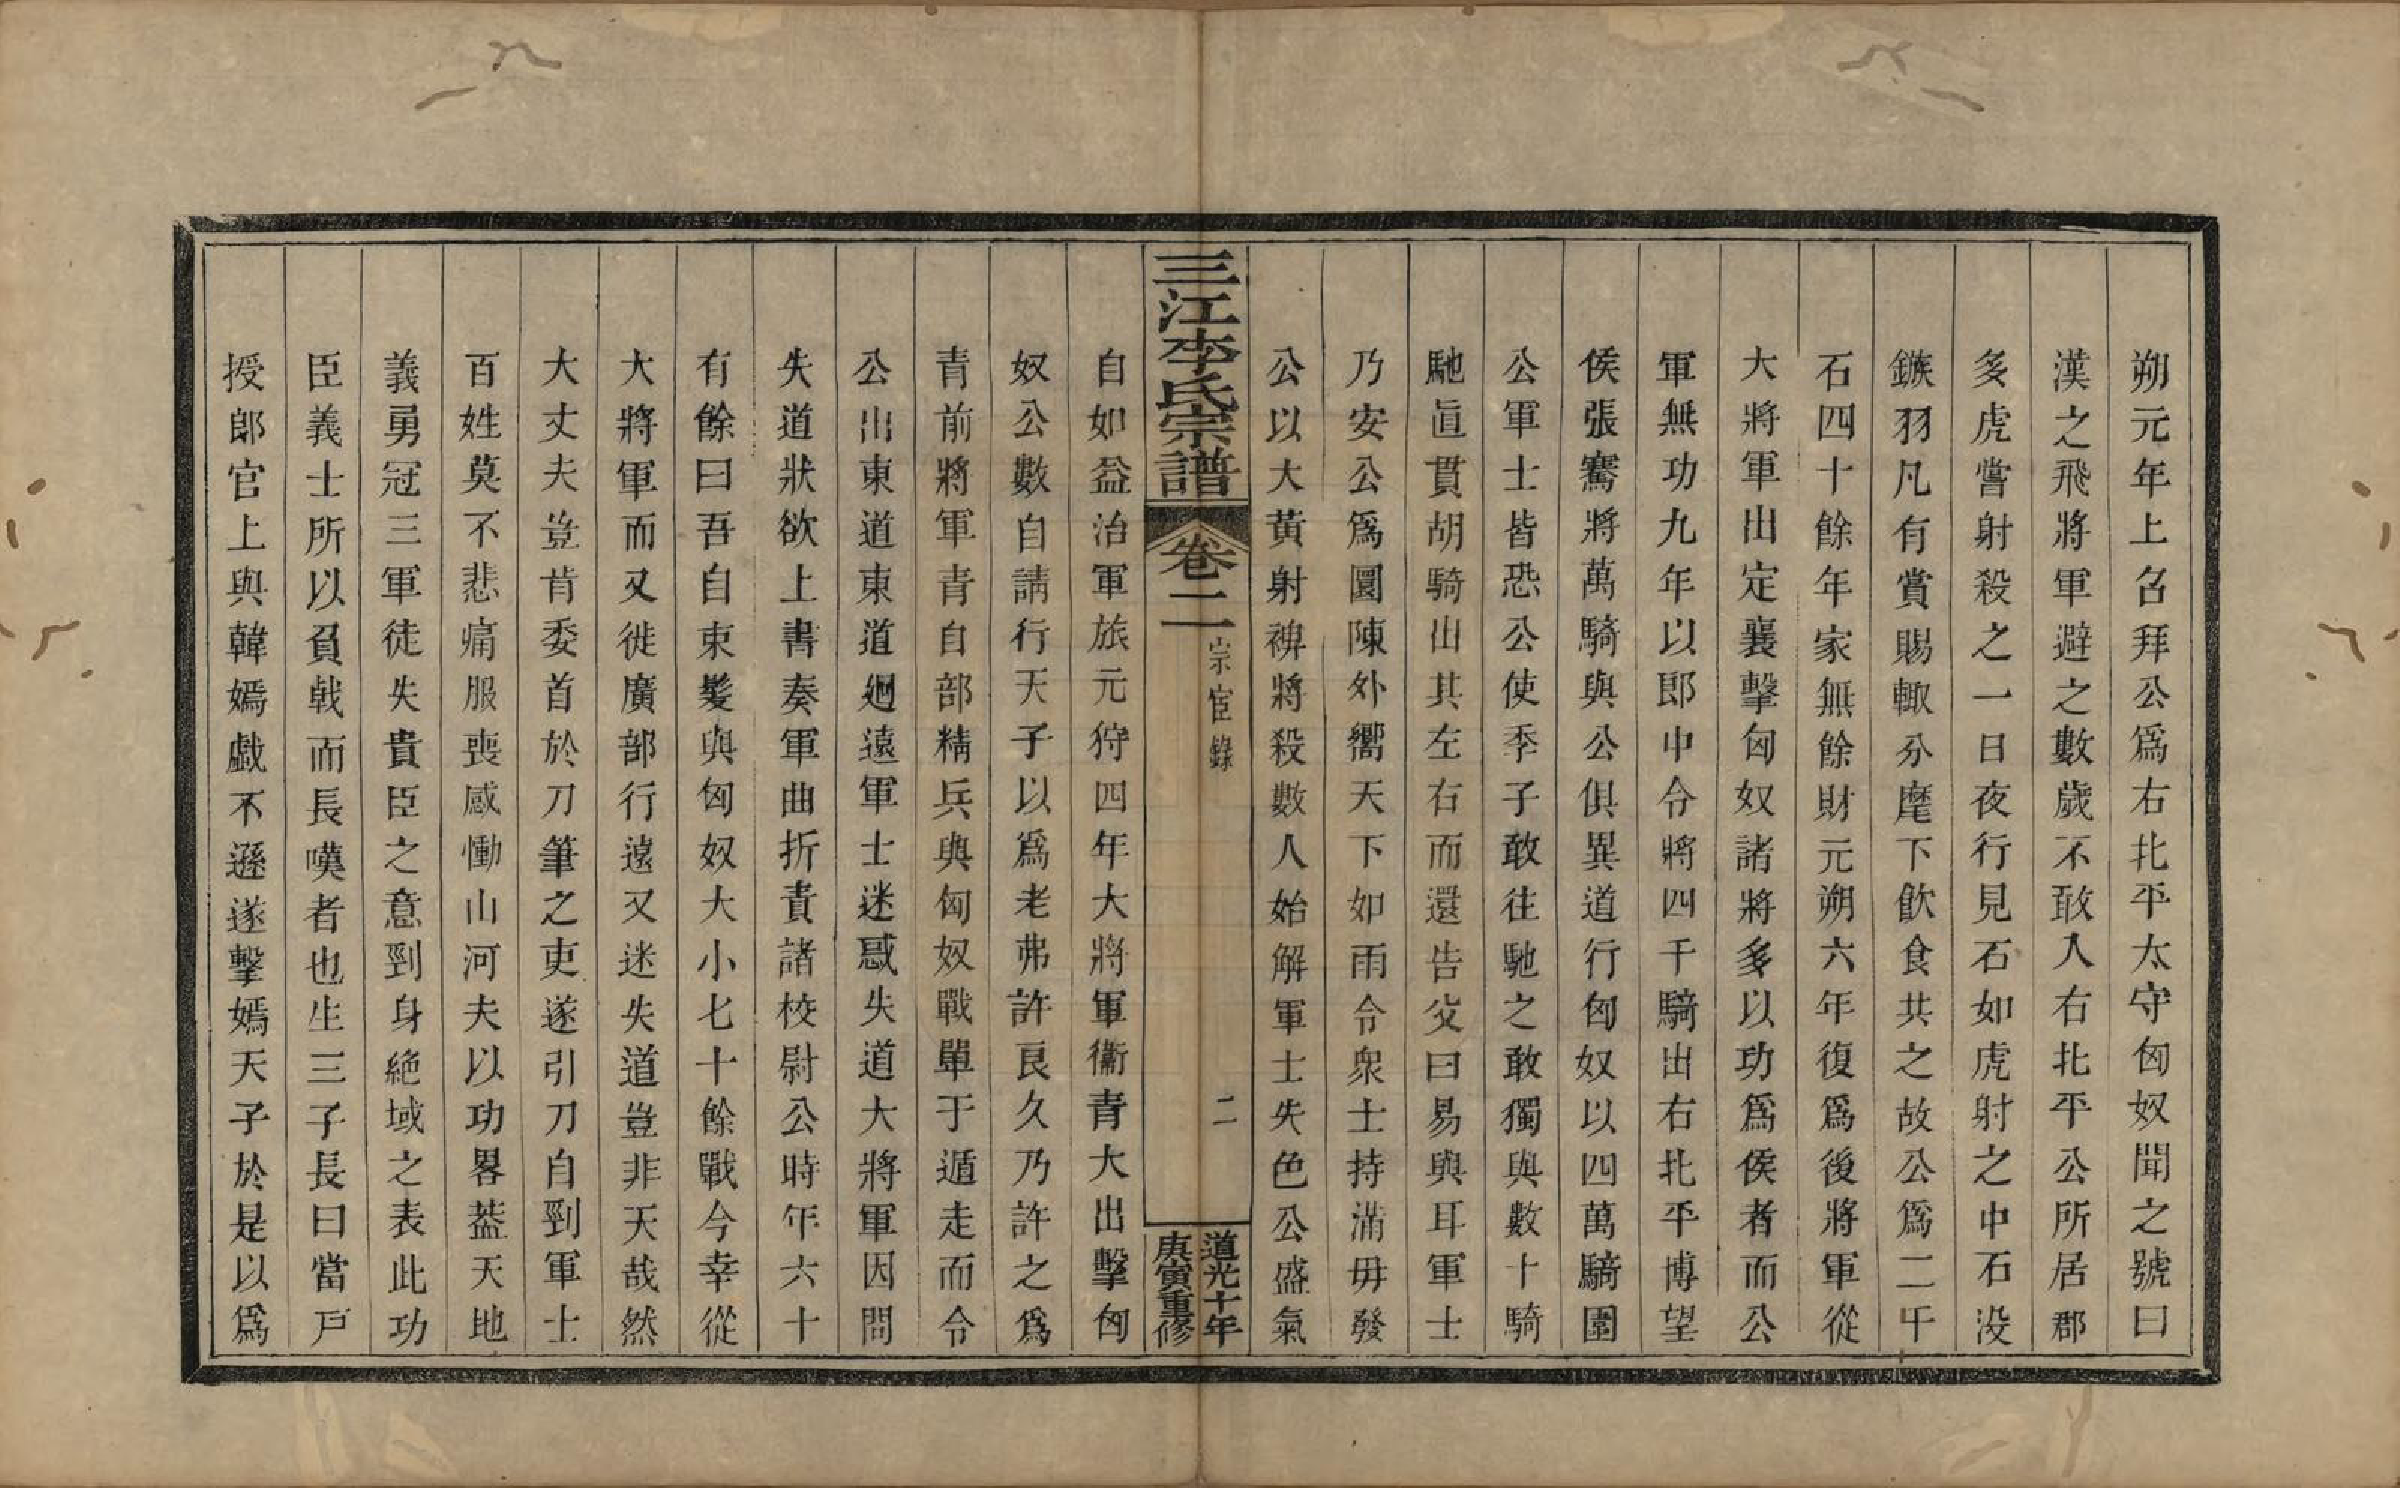 朔元年上召拜公爲右北平太守匈奴聞之號曰
漢之飛將軍避之數歲不敢入右北平公所居郡
多虎嘗射殺之一日夜行見石如虎射之中石没
鏃羽凡有賞賜輙分麾下飲食共之故公爲二千
石四十餘年家無餘財元朔六年復爲後將軍從
大將軍出定襄擊匈奴諸將多以功爲侯者而公
軍無功九年以郎中令將四千騎出右北平博望
侯張騫將萬騎與公俱異道行匈奴以四萬騎圍
公軍士皆恐公使季子敢往馳之敢獨與數十騎
馳直貫胡騎出其左右而還告父曰易與耳軍士
乃安公爲圜陳外嚮天下如雨令衆士持滿毋發
公以大黃射裨將殺數人始解軍士失色公盛氣
三江李氏宗譜
卷二
宗宦錄
二
道光十年
庚寅重修
自如益治軍旅元狩四年大將軍衞青大出擊匈
奴公數自請行天子以爲老弗許良久乃許之爲
青前將軍青自部精兵與匈奴戰單于遁走而令
公出東道東道廻遠軍士迷惑失道大將軍因問
失道狀欲上書奏軍曲折責諸校尉公時年六十
有餘曰吾自束髮與匈奴大小七十餘戰今幸從
大將軍而又徙廣部行遠又迷失道豈非天哉然
大丈夫豈肯委首於刀筆之吏遂引刀自剄軍士
百姓莫不悲痛服喪感慟山河夫以功畧葢天地
義勇冠三軍徒失貴臣之意剄身絶域之表此功
臣義士所以負戟而長嘆者也生三子長曰當戸
授郎官上與韓嫣戯不遜遂擊嫣天子於是以爲